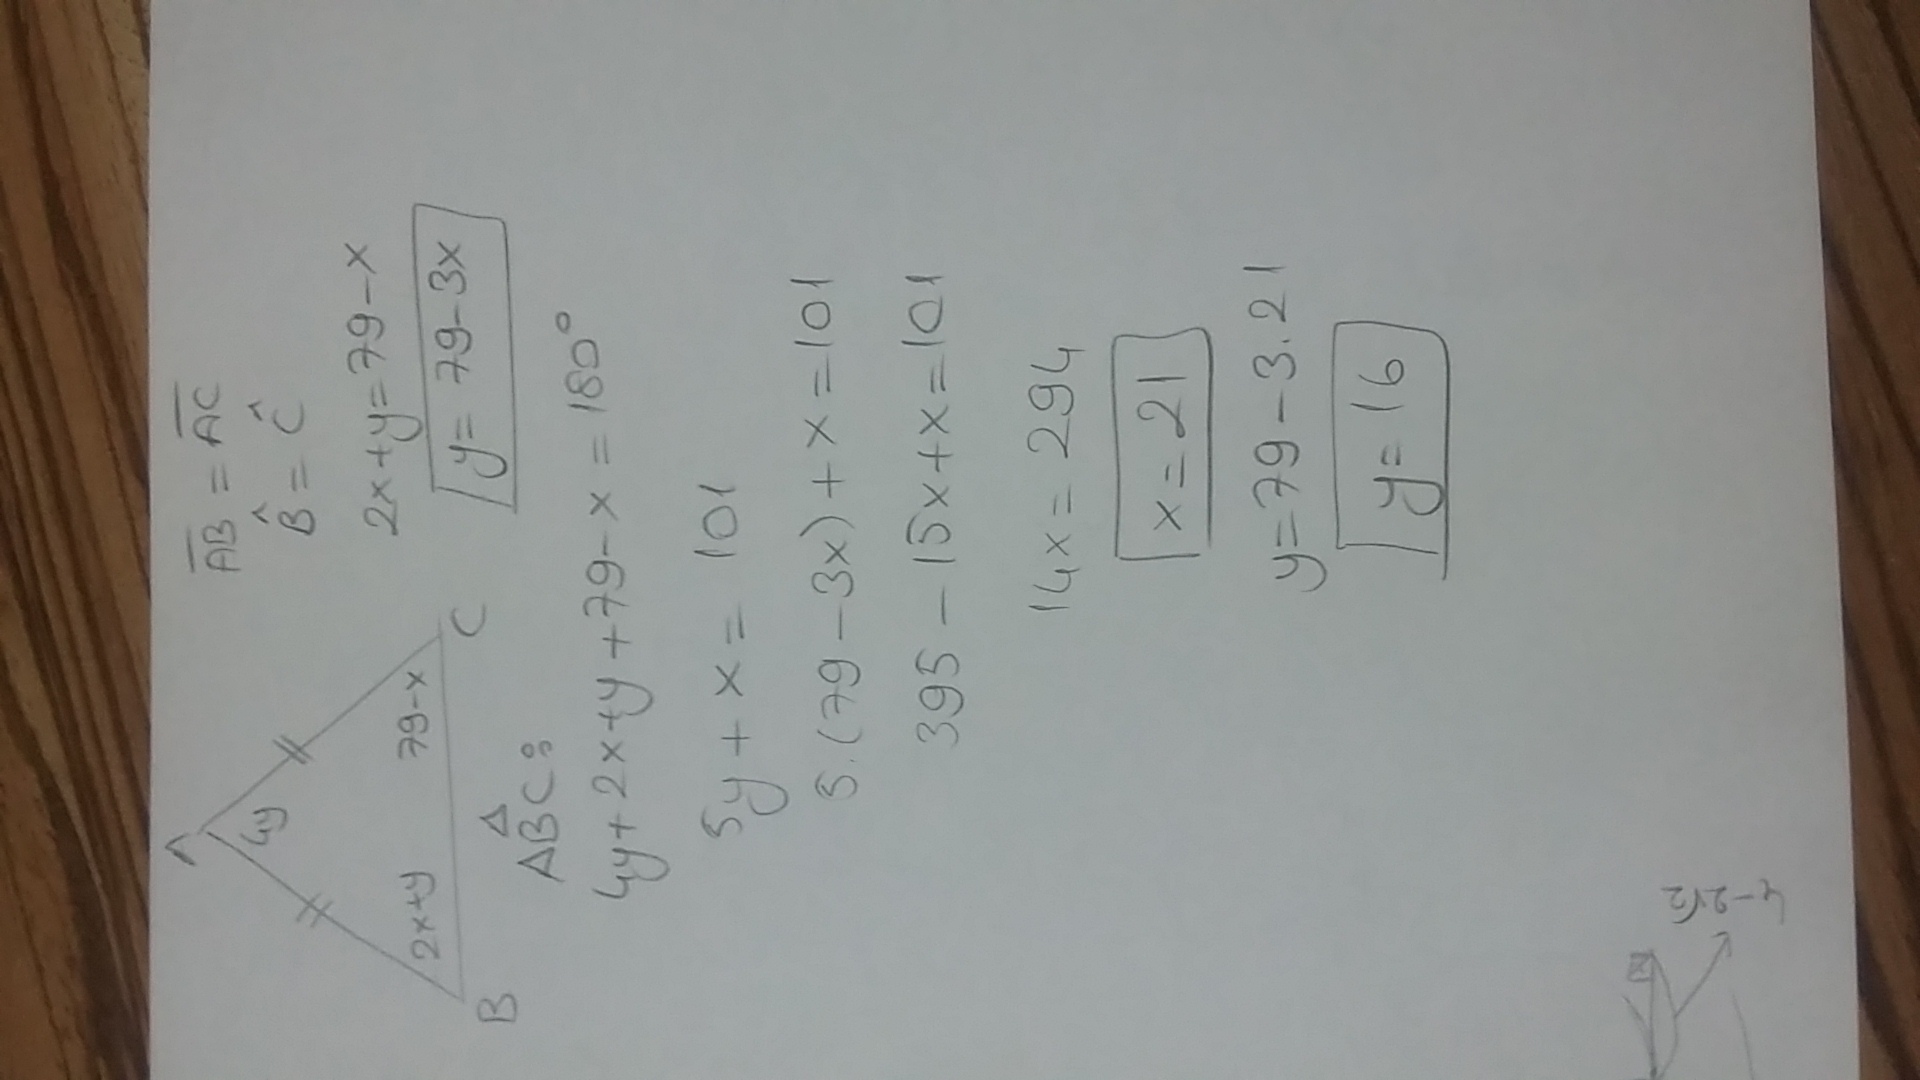 A
4y
2x+y
79-x
B
C
AB = AC
B̂ = Ĉ
2x+y=79-x
y= 79-3x
ABC:
4y+2x+y+79-x = 180°
5y + x = 101
5.(79-3x)+x=101
395 - 15x+x=101
14x = 294
x=21
y=79-3.21
y=16
4-2√2